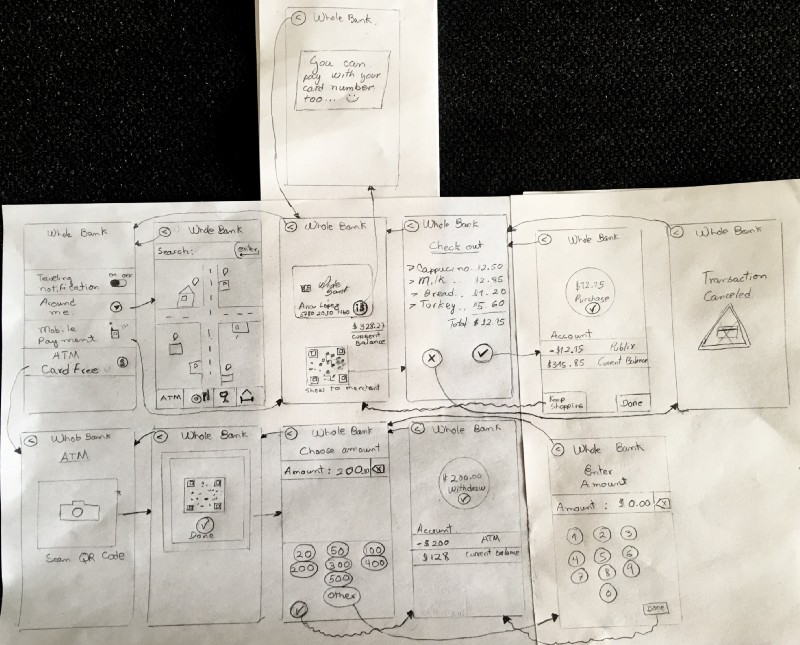 Whole Bank
You can
pay with your
card number
too...
Whole Bank
Traveling ON OFF
notification
Around
me
Mobile
Payment
ATM
Card Free $
Whole Bank
Search: enter
ATM
Whole Bank
Whole
Bank
$ 328.27
current
Balance
Show to merchant
Whole Bank
Check out
> Cappucino. 12.50
> Milk..
> Bread.. $1.20
> Turkey.. $5.60
Total $12.15
X
Whole Bank
$12.15
Purchase
Account
-$12.15 Publix
$315.85 Current Balance
Keep
Shopping
Done
Whole Bank
Transaction
Canceled
Whole Bank
ATM
Scan QR Code
Whole Bank
Done
Whole Bank
Choose amount
Amount: 200.00 X
20 50 100
200 300 400
500
Other
Whole Bank
$200.00
Withdraw
Account
-$200 ATM
$128 Current Balance
Whole Bank
Enter
Amount
Amount: $0.00 X
1 2 3
4 5 6
7 8 9
0
Done